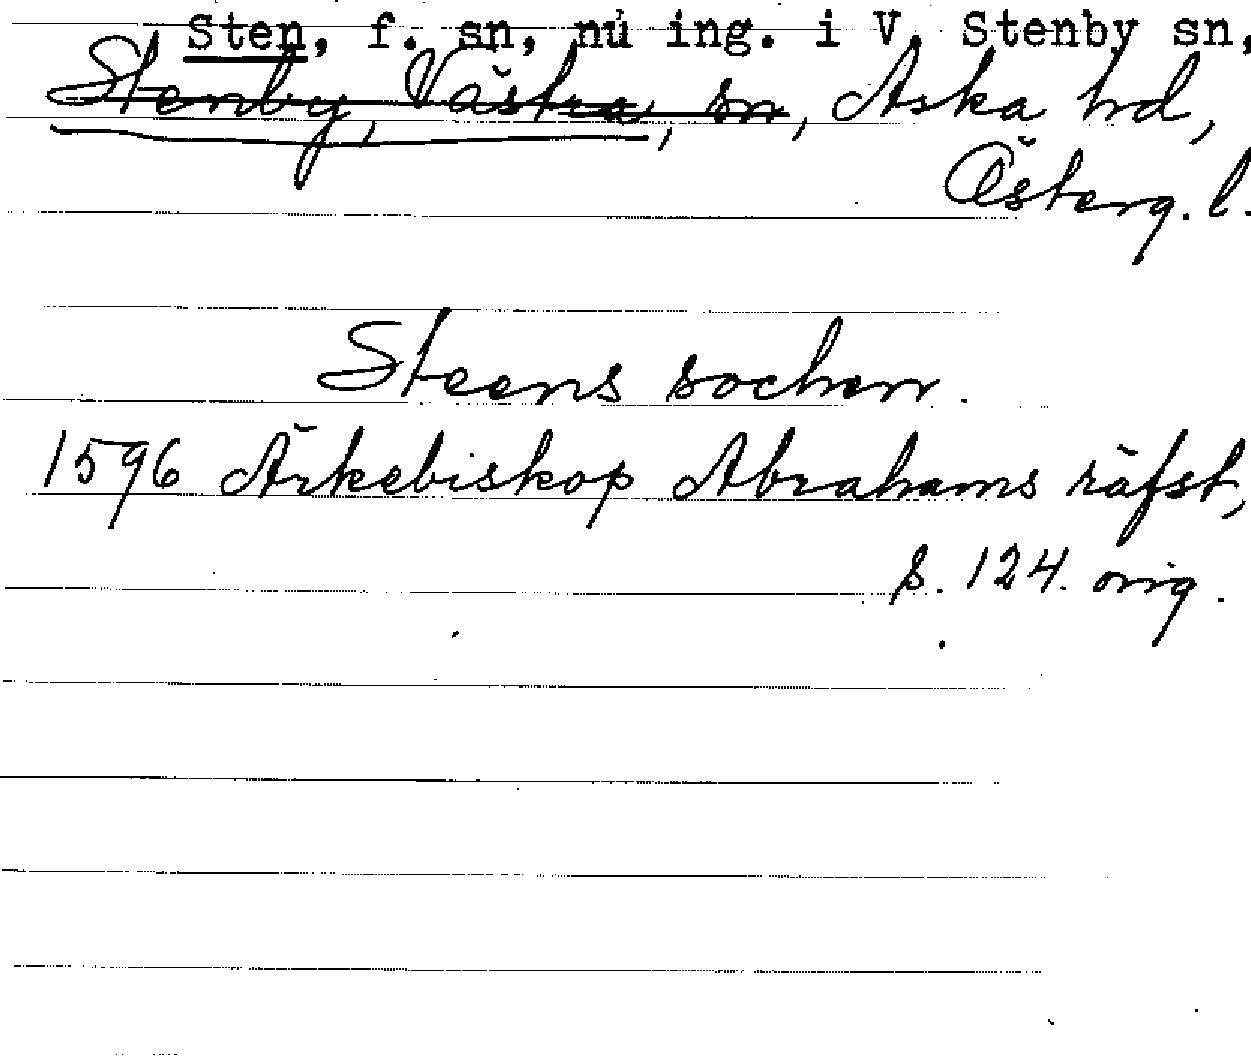 Sten, f. sn, nu ing. i V. Stenby sn,
Stenby, Västra, sn, Aska hd,
Österg. l.
Steens sochenn.
1596 Ärkebiskop Abrahams räfst,
s. 124. orig.